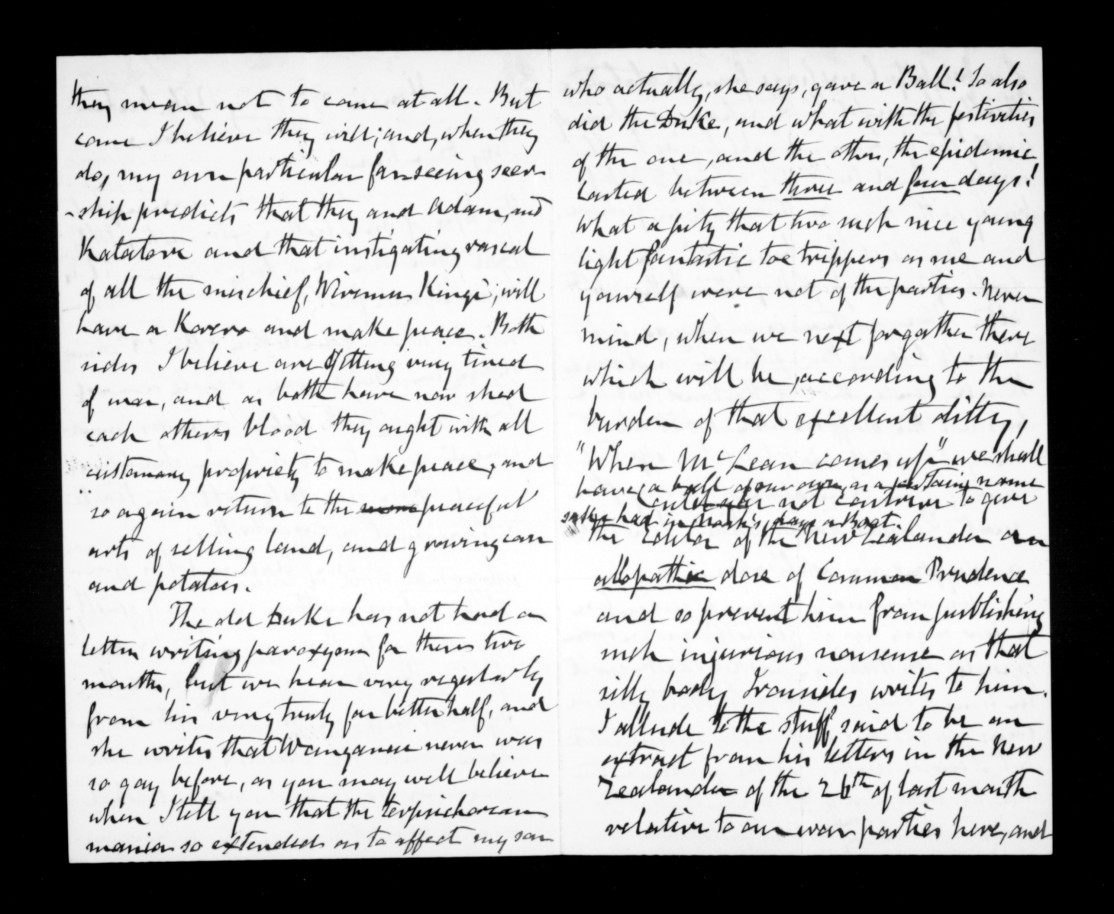 they mean not to come at all. But
come I believe they will; and, when they
do, my own particular farseeing seer-
-ship predicts that they and Adam, and
Katatore and that instigating rascal
of all the mischief, Wiremu Kingi, will
have a Korero and make peace. Both
sides I believe are getting very tired
of war, and as both have now shed
each others blood they ought with all
customary propriety to make peace, and
so again return to the peaceful
arts of selling land, and growing corn
and potatoes.
The old Duke has not had a
letter writing paroxysm for these two
months, but we hear very regularly
from his very truly far better half, and
she writes that Wanganui never was
so gay before, as you may well believe
when I tell you that the terpsichorean
mania so extended as to affect my son
who actually, she says, gave a Ball! So also
did the Duke, and what with the festivities
of the one, and the other, the epidemic
lasted between three and four days!
What a pity that two such nice young
light fantastic toe trippers as me and
yourself were not of the parties. Never
mind, when we next forgather there
which will be, according to the
burden of that excellent ditty,
"When McLean comes up" we shall
have a ball of our own,
not contrive to give
the Editor of the New Zealander an
allopathic dose of Common Prudence
and so prevent him from publishing
such injurious nonsense as that
silly body Ironsides writes to him.
I allude to the stuff, said to be an
extract from his letters in the New
Zealander of the 26th of last month
relative to our war parties here, and